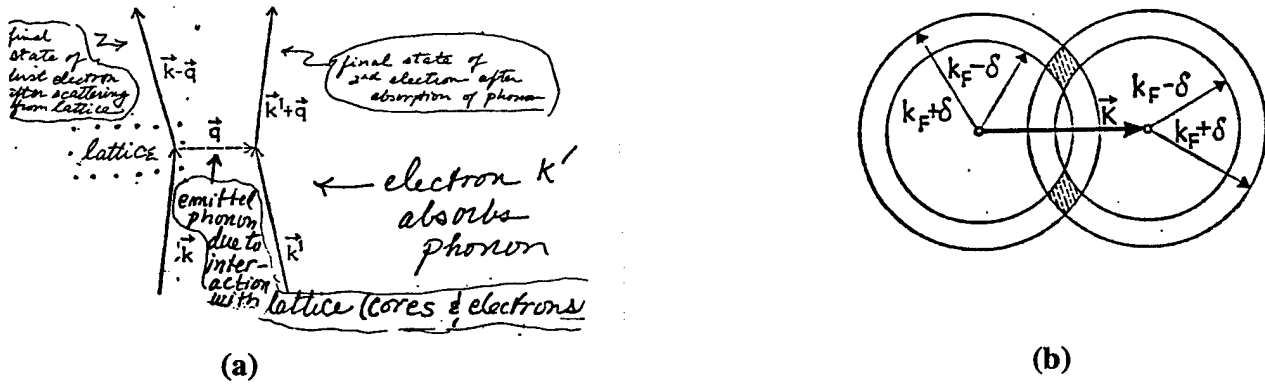 final
state of
first electron
after scattering
from lattice
k⃗-q⃗
final state of
2nd electron after
absorption of phonon
k⃗'+q⃗
q⃗
lattice
emitted
phonon
due to
inter-
action
with lattice (cores & electrons
k⃗
k⃗'
electron k'
absorbs
phonon
(a)
k_F-δ
k_F+δ
K⃗
k_F-δ
k_F+δ
(b)